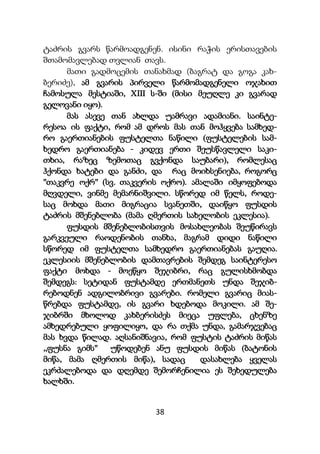 ტაძრის გვარს წარმოადგენენ. ისინი რაჭის ერისთავების
შთამომავლებად თვლიან თავს.
მათი გადმოცემის თანახმად (ბაგრატ და გოგა კახ-
ბერიძე), ამ გვარის პირველი წარმომადგენელი ოჯახით
ჩამოსულა მესტიაში, XIII ს-ში (მისი მეუღლე კი გვარად
გელოვანი იყო).
მას ასევე თან ახლდა უამრავი ადამიანი. საინტე-
რესოა ის ფაქტი, რომ ამ დროს მას თან მოჰყვება სამხედ-
რო გაერთიანების ფუსტელთა ნაწილი (ფუსტელების სამ-
ხედრო გაერთიანება - კიდევ ერთი შეუსწავლელი საკი-
თხია, რაზეც ზემოთაც გვქონდა საუბარი), რომლესაც
ჰქონდა ხატები და განძი, და რაც მოიხსენიება, როგორც
"თაკვრე ოქრ" (სვ. თაკვერის ოქრო). ამალაში იმყოფებოდა
მღვდელი, ვინმე მემარნიშვილი. სწორედ იმ წელს, როდე-
საც მოხდა მათი მიგრაცია სვანეთში, დაიწყო ფუსდის
ტაძრის მშენებლობა (მამა ღმერთის სახელობის ეკლესია).
ფუსდის მშენებლობისთვის მოსახლეობას შეუწირავს
გარკვეული რაოდენობის თანხა, მაგრამ დიდი ნაწილი
სწორედ იმ ფუსტელთა სამხედრო გაერთიანებას გაულია.
ეკლესიის მშენებლობის დამთავრების შემდეგ საინტერესო
ფაქტი მოხდა - მოეწყო შეჯიბრი, რაც გულისხმობდა
შემდეგს: სეტიდან ფუსტამდე ერთმანეთს უნდა შეჯიბ-
რებოდნენ ადგილობრივი გვარები. რომელი გვარიც მიას-
წრებდა ფუსტამდე, ის გვარი ხდებოდა მოკილი. ამ შე-
ჯიბრში მხოლოდ კახბერისძეს მიეცა უფლება, ცხენზე
ამხედრებული ყოფილიყო, და რა თქმა უნდა, გამარჯვებაც
მას ხვდა წილად. აღსანიშნავია, რომ ფუსტის ტაძრის მიწას
„ფუსნა გიმს" უწოდებენ ანუ ფუსდის მიწას (ბატონის
მიწა, მამა ღმერთის მიწა), სადაც დასახლება ყველას
ეკრძალებოდა და დღემდე შემორჩენილია ეს შეხედულება
ხალხში.
38